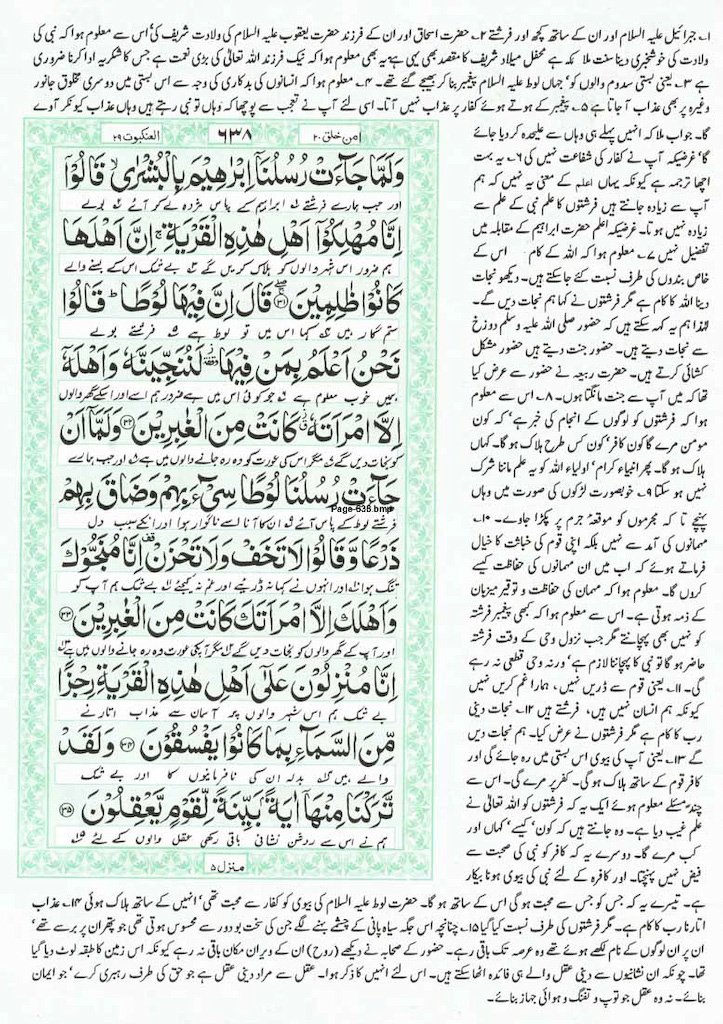 ۱۔ جبرائیل علیہ السلام اور ان کے ساتھ کچھ اور فرشتے ۲۔ حضرت اسحاق اور ان کے فرزند حضرت یعقوب علیہ السلام کی ولادت شریف کی' اس سے معلوم ہوا کہ نبی کی
ولادت کی خوشخبری دینا سنت ملائکہ ہے محفل میلاد شریف کا مقصد بھی یہی ہے یہ بھی معلوم ہوا کہ نیک فرزند اللہ تعالیٰ کی بڑی نعمت ہے جس کا شکریہ ادا کرنا ضروری
ہے ۳۔ یعنی بستی سدوم والوں کو' جہاں لوط علیہ السلام پیغمبر بنا کر بھیجے گئے تھے۔ ۴۔ معلوم ہوا کہ انسانوں کی بدکاری کی وجہ سے اس بستی میں دوسری مخلوق جانور
وغیرہ پر بھی عذاب آ جاتا ہے ۵۔ پیغمبر کے ہوتے ہوئے کفار پر عذاب نہیں آتا۔ اسی لئے آپ نے تعجب سے پوچھا کہ وہاں تو نبی رہتے ہیں وہاں عذاب کیونکر آوے
گا۔ جواب ملا کہ انہیں پہلے ہی وہاں سے علیحدہ کر دیا جائے
گا' غرضیکہ آپ نے کفار کی شفاعت نہیں کی ۶۔ یہ بہت
اچھا ترجمہ ہے کیونکہ یہاں اعلم کے معنی یہ نہیں کہ ہم
آپ سے زیادہ جانتے ہیں فرشتوں کا علم نبی کے علم سے
زیادہ نہیں ہوتا۔ غرضیکہ اعلم حضرت ابراہیم کے مقابلہ میں
تفضیل نہیں ۷۔ معلوم ہوا کہ اللہ کے کام اس کے
خاص بندوں کی طرف نسبت کئے جا سکتے ہیں۔ دیکھو نجات
دینا اللہ کا کام ہے مگر فرشتوں نے کہا ہم نجات دیں گے۔
لہٰذا ہم یہ کہہ سکتے ہیں کہ حضور صلی اللہ علیہ وسلم دوزخ
سے نجات دیتے ہیں۔ حضور جنت دیتے ہیں حضور مشکل
کشائی کرتے ہیں۔ حضرت ربیعہ نے حضور سے عرض کیا
تھا کہ میں آپ سے جنت مانگتا ہوں۔ ۸۔ اس سے معلوم
ہوا کہ فرشتوں کو لوگوں کے انجام کی خبر ہے' کہ کون
مومن مرے گا کون کافر' کون کس طرح ہلاک ہو گا۔ کہاں
ہلاک ہو گا۔ پھر انبیاء کرام' اولیاء اللہ کو یہ علم ماننا شرک
نہیں ہو سکتا ۹۔ خوبصورت لڑکوں کی صورت میں وہاں
پہنچے تا کہ مجرموں کو موقعۂ جرم پر پکڑا جاوے۔ ۱۰۔
مہمانوں کی آمد سے نہیں بلکہ اپنی قوم کی خباثت کا خیال
فرماتے ہوئے کہ اب میں ان مہمانوں کی حفاظت کیسے
کروں گا۔ معلوم ہوا کہ مہمان کی حفاظت و توقیر میزبان
کے ذمہ ہوتی ہے۔ اس سے معلوم ہوا کہ کبھی پیغمبر فرشتہ
کو نہیں بھی پہچانتے مگر جب نزول وحی کے وقت فرشتہ
حاضر ہو گا تو نبی کا پہچاننا لازم ہے' ورنہ وحی قطعی نہ رہے
گی۔ ۱۱۔ یعنی قوم سے ڈریں نہیں، ہمارا غم کریں نہیں
کیونکہ ہم انسان نہیں ہیں، فرشتے ہیں ۱۲۔ نجات دینی
رب کا کام ہے مگر فرشتوں نے عرض کیا۔ ہم نجات دیں
گے ۱۳۔ یعنی آپ کی بیوی اس بستی میں رہ جائے گی اور
کافر قوم کے ساتھ ہلاک ہو گی۔ کفر پر مرے گی۔ اس سے
چند مسئلے معلوم ہوئے ایک یہ کہ فرشتوں کو اللہ تعالیٰ نے
علم غیب دیا ہے۔ وہ جانتے ہیں کہ کون' کیسے' کہاں اور
کب مرے گا۔ دوسرے یہ کہ کافر کو نبی کی صحبت سے
فیض نہیں پہنچتا۔ اور کافرہ کے لئے نبی کی بیوی ہونا بیکار
العنکبوت ۲۹
۶۳۸
امن خلق ۲۰
وَلَمَّا جَآءَتْ رُسُلُنَآ اِبْرٰهِيْمَ بِالْبُشْرٰى ۙ قَالُوْٓا
اور جب ہمارے فرشتے ابراہیم کے پاس مژدہ لے کر آئے بولے
اِنَّا مُهْلِكُوْٓا اَهْلِ هٰذِهِ الْقَرْيَةِ ۚ اِنَّ اَهْلَهَا
ہم ضرور اس شہر والوں کو ہلاک کریں گے بے شک اس کے بسنے والے
كَانُوْا ظٰلِمِيْنَ ﴿۳۱﴾ قَالَ اِنَّ فِيْهَا لُوْطًا ؕ قَالُوْا
ستم گار ہیں کہا اس میں تو لوط ہے فرشتے بولے
نَحْنُ اَعْلَمُ بِمَنْ فِيْهَا ۫ لَنُنَجِّيَنَّهٗ وَاَهْلَهٗٓ
ہمیں خوب معلوم ہے جو کوئی اس میں ہے ضرور ہم اسے اور اسکے گھر والوں
اِلَّا امْرَاَتَهٗ ۫ كَانَتْ مِنَ الْغٰبِرِيْنَ ﴿۳۲﴾ وَلَمَّآ اَنْ
کو نجات دیں گے مگر اس کی عورت کو وہ رہ جانے والوں میں ہے اور جب ہمارے
جَآءَتْ رُسُلُنَا لُوْطًا سِىْٓءَ بِهِمْ وَضَاقَ بِهِمْ
Page-638.bmp
فرشتے لوط کے پاس آئے ان کا آنا اسے ناگوار ہوا اور انکے سبب دل
ذَرْعًا وَّقَالُوْا لَا تَخَفْ وَلَا تَحْزَنْ ۫ اِنَّا مُنَجُّوْكَ
تنگ ہوا اور انہوں نے کہا نہ ڈریئے اور غم نہ کیجئے بے شک ہم آپ کو
وَاَهْلَكَ اِلَّا امْرَاَتَكَ كَانَتْ مِنَ الْغٰبِرِيْنَ ﴿۳۳﴾
اور آپ کے گھر والوں کو نجات دیں گے مگر آپکی عورت وہ رہ جانے والوں میں ہے
اِنَّا مُنْزِلُوْنَ عَلٰٓى اَهْلِ هٰذِهِ الْقَرْيَةِ رِجْزًا
بے شک ہم اس شہر والوں پر آسمان سے عذاب اتارنے
مِّنَ السَّمَآءِ بِمَا كَانُوْا يَفْسُقُوْنَ ﴿۳۴﴾ وَلَقَدْ
والے ہیں بدلہ ان کی نافرمانیوں کا اور بے شک
تَّرَكْنَا مِنْهَآ اٰيَةًۢ بَيِّنَةً لِّقَوْمٍ يَّعْقِلُوْنَ ﴿۳۵﴾
ہم نے اس سے روشن نشانی باقی رکھی عقل والوں کے لئے
منزل ۵
ہے۔ تیسرے یہ کہ جس کو جس سے محبت ہو گی اس کے ساتھ ہو گا۔ حضرت لوط علیہ السلام کی بیوی کو کفار سے محبت تھی' انہیں کے ساتھ ہلاک ہوئی ۱۴۔ عذاب
اتارنا رب کا کام ہے۔ مگر فرشتوں کی طرف نسبت کیا گیا ۱۵۔ چنانچہ اس جگہ سیاہ پانی کے چشمے بہنے لگے جن کی سخت بو دور سے محسوس ہوتی تھی جو پتھر ان پر برسے تھے'
ان پر ان لوگوں کے نام لکھے ہوئے تھے وہ عرصہ تک باقی رہے۔ حضور کے صحابہ نے دیکھے (روح) ان کے ویران مکان باقی نہ رہے کیونکہ اس زمین کا طبقہ لوٹ دیا گیا
تھا۔ چونکہ ان نشانیوں سے دینی عقل والے ہی فائدہ اٹھا سکتے ہیں۔ اس لئے انہیں کا ذکر ہوا۔ عقل سے مراد دینی عقل ہے جو حق کی طرف رہبری کرے' جو ایمان
بنائے۔ نہ وہ عقل جو توپ و تفنگ و ہوائی جہاز بنائے۔